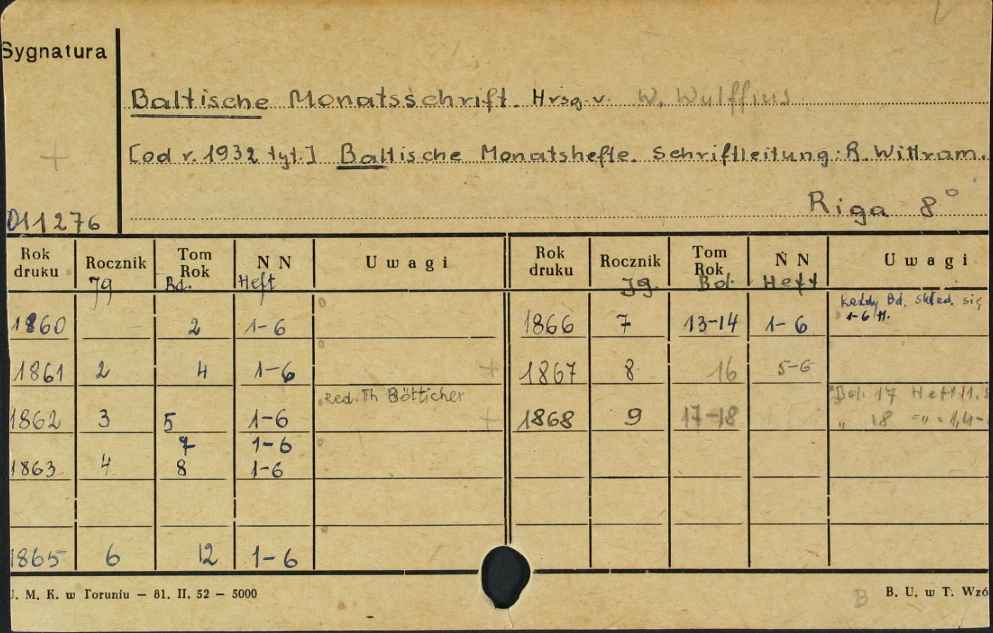 Sygnatura
Baltische Monatsschrift. Hrsg. v. W. Wulffius
[od r. 1932 tyt.] Baltische Monatshefte. Schriftleitung: R. Wittram.
Riga 8°
011276
Rok druku Rocznik Tom Rok NN Uwagi Rok druku Rocznik Tom Rok NN Uwagi
Jg Bd. Heft Jg. Bd. Heft
1860 2 1-6 1866 7 13-14 1-6 każdy Bd. skład. się
1-6 H.
1861 2 4 1-6 + 1867 8 16 5-6
1862 3 5 1-6 red. Th Bötticher + 1868 9 17-18 Bd. 17 Heft 1.
" 18 -"- 1,4-
7 1-6
1863 4 8 1-6
1865 6 12 1-6
U. M. K. w Toruniu — 81. II. 52 — 5000
B B. U. w T. Wzó